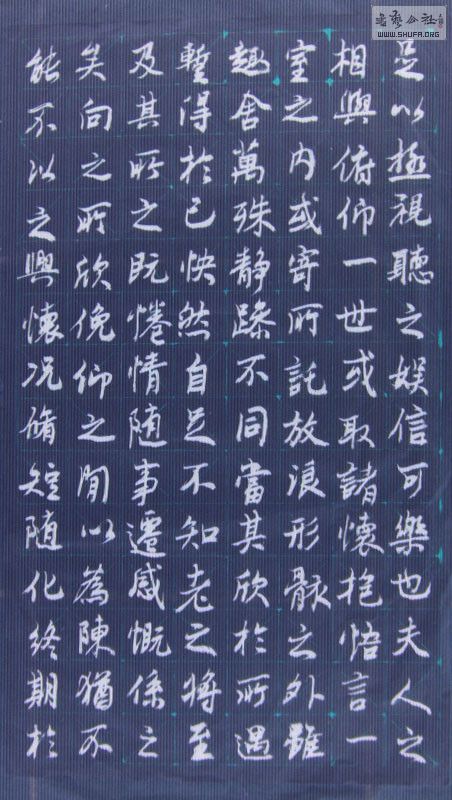 足以極視聽之娛信可樂也夫人之
相與俯仰一世或取諸懷抱悟言一
室之内或寄所託放浪形骸之外雖
趣舍萬殊静躁不同當其欣於所遇
暫得於己快然自足不知老之將至
及其所之既惓情随事遷感慨係之
矣向之所欣俛仰之閒以為陳猶不
能不以之興懷況脩短随化終期於
書藝公社
WWW.SHUFA.ORG